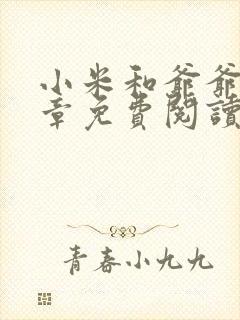 小米和爺爺
章免費閱讀
青春小九九